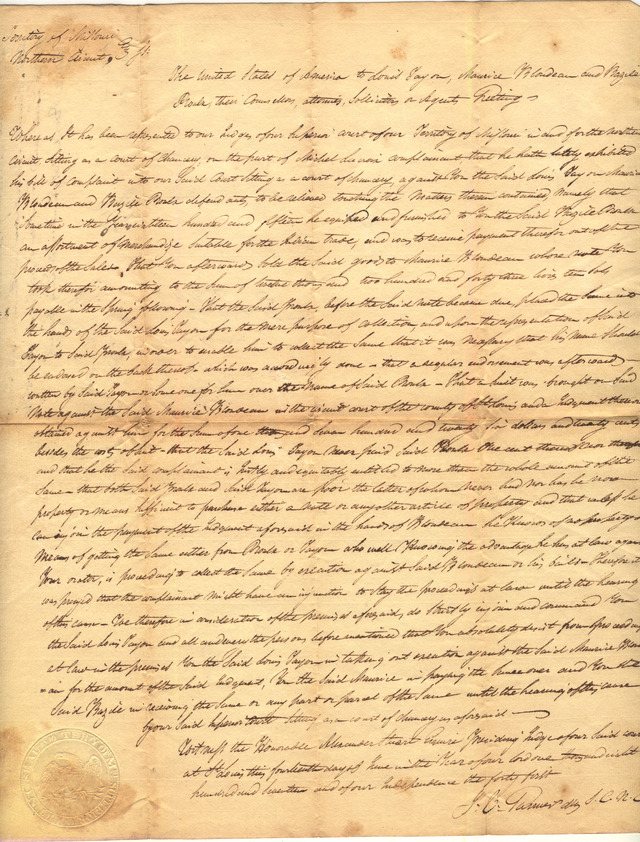 Territory of Missouri
Northern Circuit
The United States of America to Louis Yayon, Maurice Blondeau and Bazile
Proulx, their Counsellors, attornies, Sollicitors or Agents Greeting
Whereas It has been represented to our Judges of our Superior Court of our Territory of Missouri in and for the northern
Circuit, Sitting as a court of Chancery, on the part of Michel Lacroix complainant that he hath lately exhibited
his bill of Complaint into our Said Court Sitting as a court of chancery, against You the Said Louis Yayon Maurice
Blondeau and Bazile Proulx defendants, to be relieved touching the Matters therein contained, namely that
Sometime in the Year eighteen hundred and fifteen he equiped and furnished to You the Said Bazile Proulx
an assortment of merchandize Suitable for the Indian trade, and was to receive payment therefor out of the
proceeds of the Sales. That You afterwards Sold the Said goods to Maurice Blondeau whose note You
took therefor amounting to the Sum of twelve thousand two hundred and forty three livres ten sols
payable in the Spring following - That the Said Proulx, before the Said note became due, placed the Same into
the hands of the Said Louis Yayon for the mere purpose of collection, and upon the representation of Said
Yayon to Said Proulx in order to enable him to collect the Same that it was necessary that his name Should
be endorsed on the back thereof - which was accordingly done - that a regular endorsement was afterwards
written by Said Yayon or Some one for him over the Name of Said Proulx - That a Suit was brought on Said
Note against the Said Maurice Blondeau in the circuit court of the county of St Louis and a Judgment thereon
obtained against him for the Sum of one thousand Seven hundred and twenty
besides the costs of Suit - that the Said Louis Yayon Never paid Said Proulx One cent
and that he the Said complainant is Justly and equitably entitled to more than the whole amount of the
Same - that both Said Proulx and Said Yayon are poor the latter of whom never had nor has he now
property or means Sufficient to purchase either a Note or any other article of property and that unless he
can enjoin the payment of the Judgment aforesaid in the hands of Blondeau he Knows of no property or
Means of getting the Same either from Proulx or Yayon who well Knowing the advantage he has at law against
Your orator, is proceeding to collect the Same by execution against Said Blondeau or his bail - Therefore it
was prayed that the complainant Might have an injunction to Stay the proceedings at law until the hearing
of this cause - We therefore in consideration of the premises aforesaid, do Strictly enjoin and command You
the Said Louis Yayon and all and every the persons before mentioned that You absolutely desist from proceeding
at law in the premises You the Said Louis Yayon in taking out execution against the Said Maurice Blond
=eau for the amount of the Said Judgment, You the Said Maurice in paying the Same over and You the
Said Bazile in receiving the Same or any part or parcel of the Same until the hearing of this cause
by our Said Superior Court Sitting as a court of chancery as aforesaid -
Witness the Honorable Alexander Stuart Esquire Presiding Judge of our Said court
at St Louis this fourteenth day of June in the Year of our Lord one thousand eight
hundred and Seventeen and of our Independence the forty first